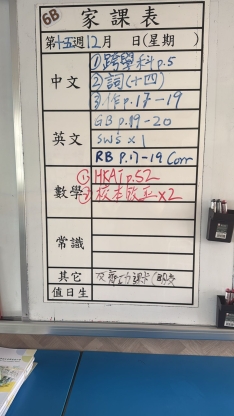 6B
家課表
第十五週12月　日(星期　)
中文
①跨學科p.5
②詞(十四)
③作p.17-19
英文
GB p.19-20
SWS x1
RB p.17-19 Corr
數學
①HKAT p.52
②校本改正x2
常識
其它
值日生